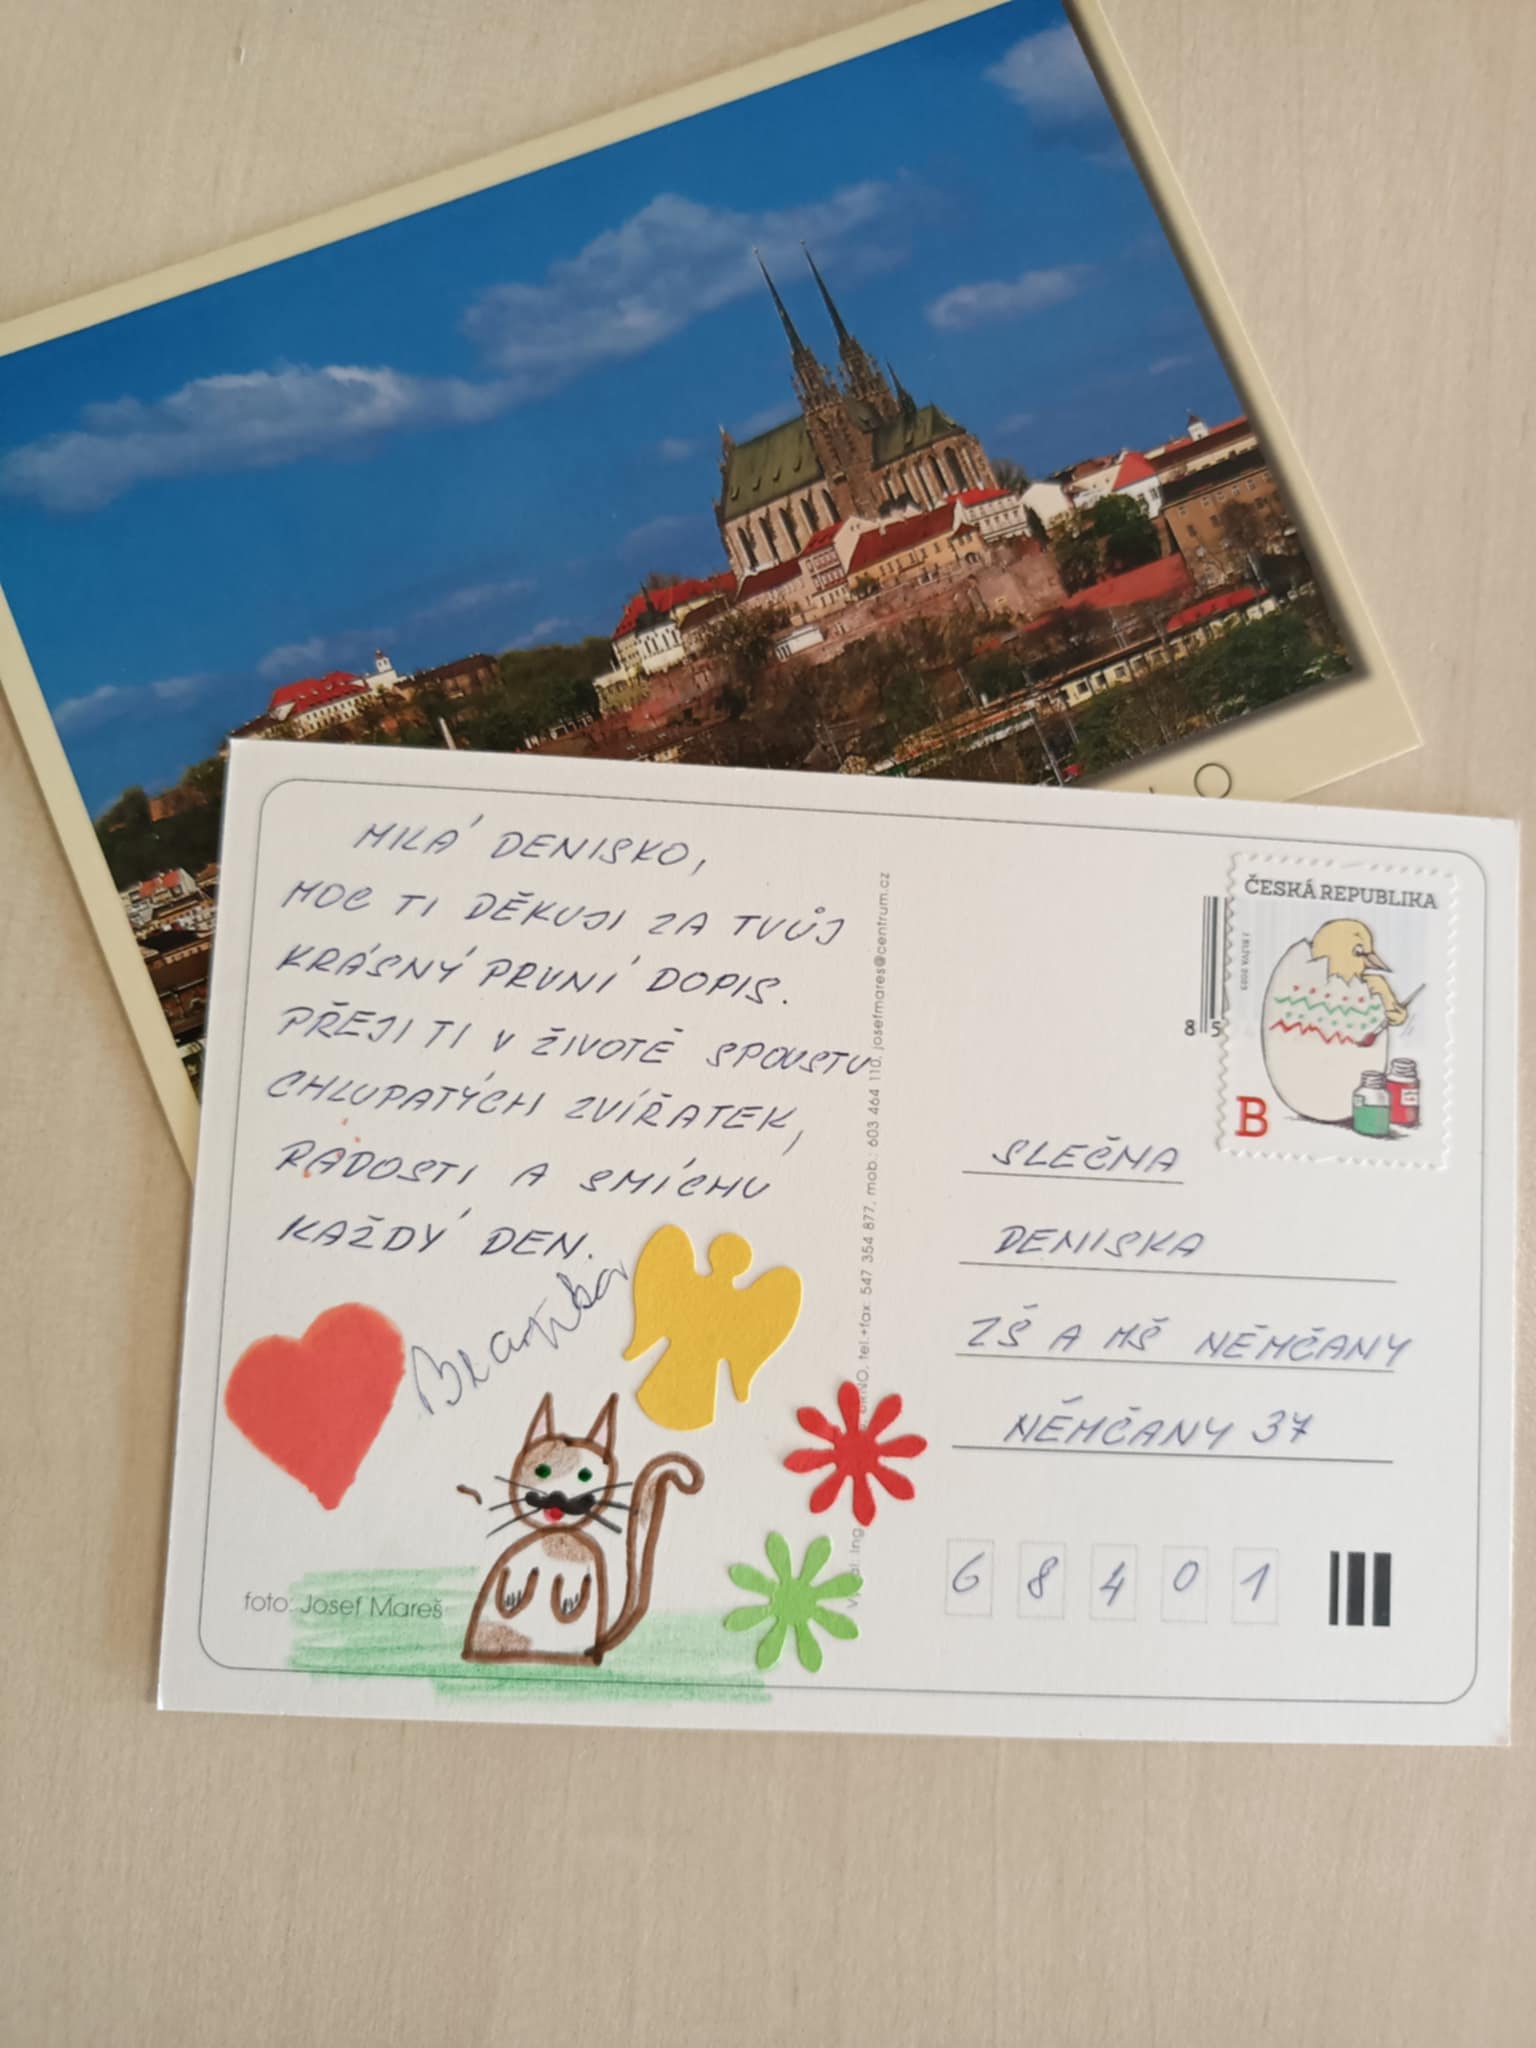 MILÁ DENISKO,
MOC TI DĚKUJI ZA TVŮJ
KRÁSNÝ PRVNÍ DOPIS.
PŘEJI TI V ŽIVOTĚ SPOUSTU
CHLUPATÝCH ZVÍŘATEK,
RADOSTI A SMÍCHU
KAŽDÝ DEN.
foto: Josef Mareš
BRNO, tel.+fax: 547 354 877, mob.: 603 464 110, josefmares@centrum.cz
85
ČESKÁ REPUBLIKA
B
SLEČNA
DENISKA
ZŠ A MŠ NĚMČANY
NĚMČANY 37
68401